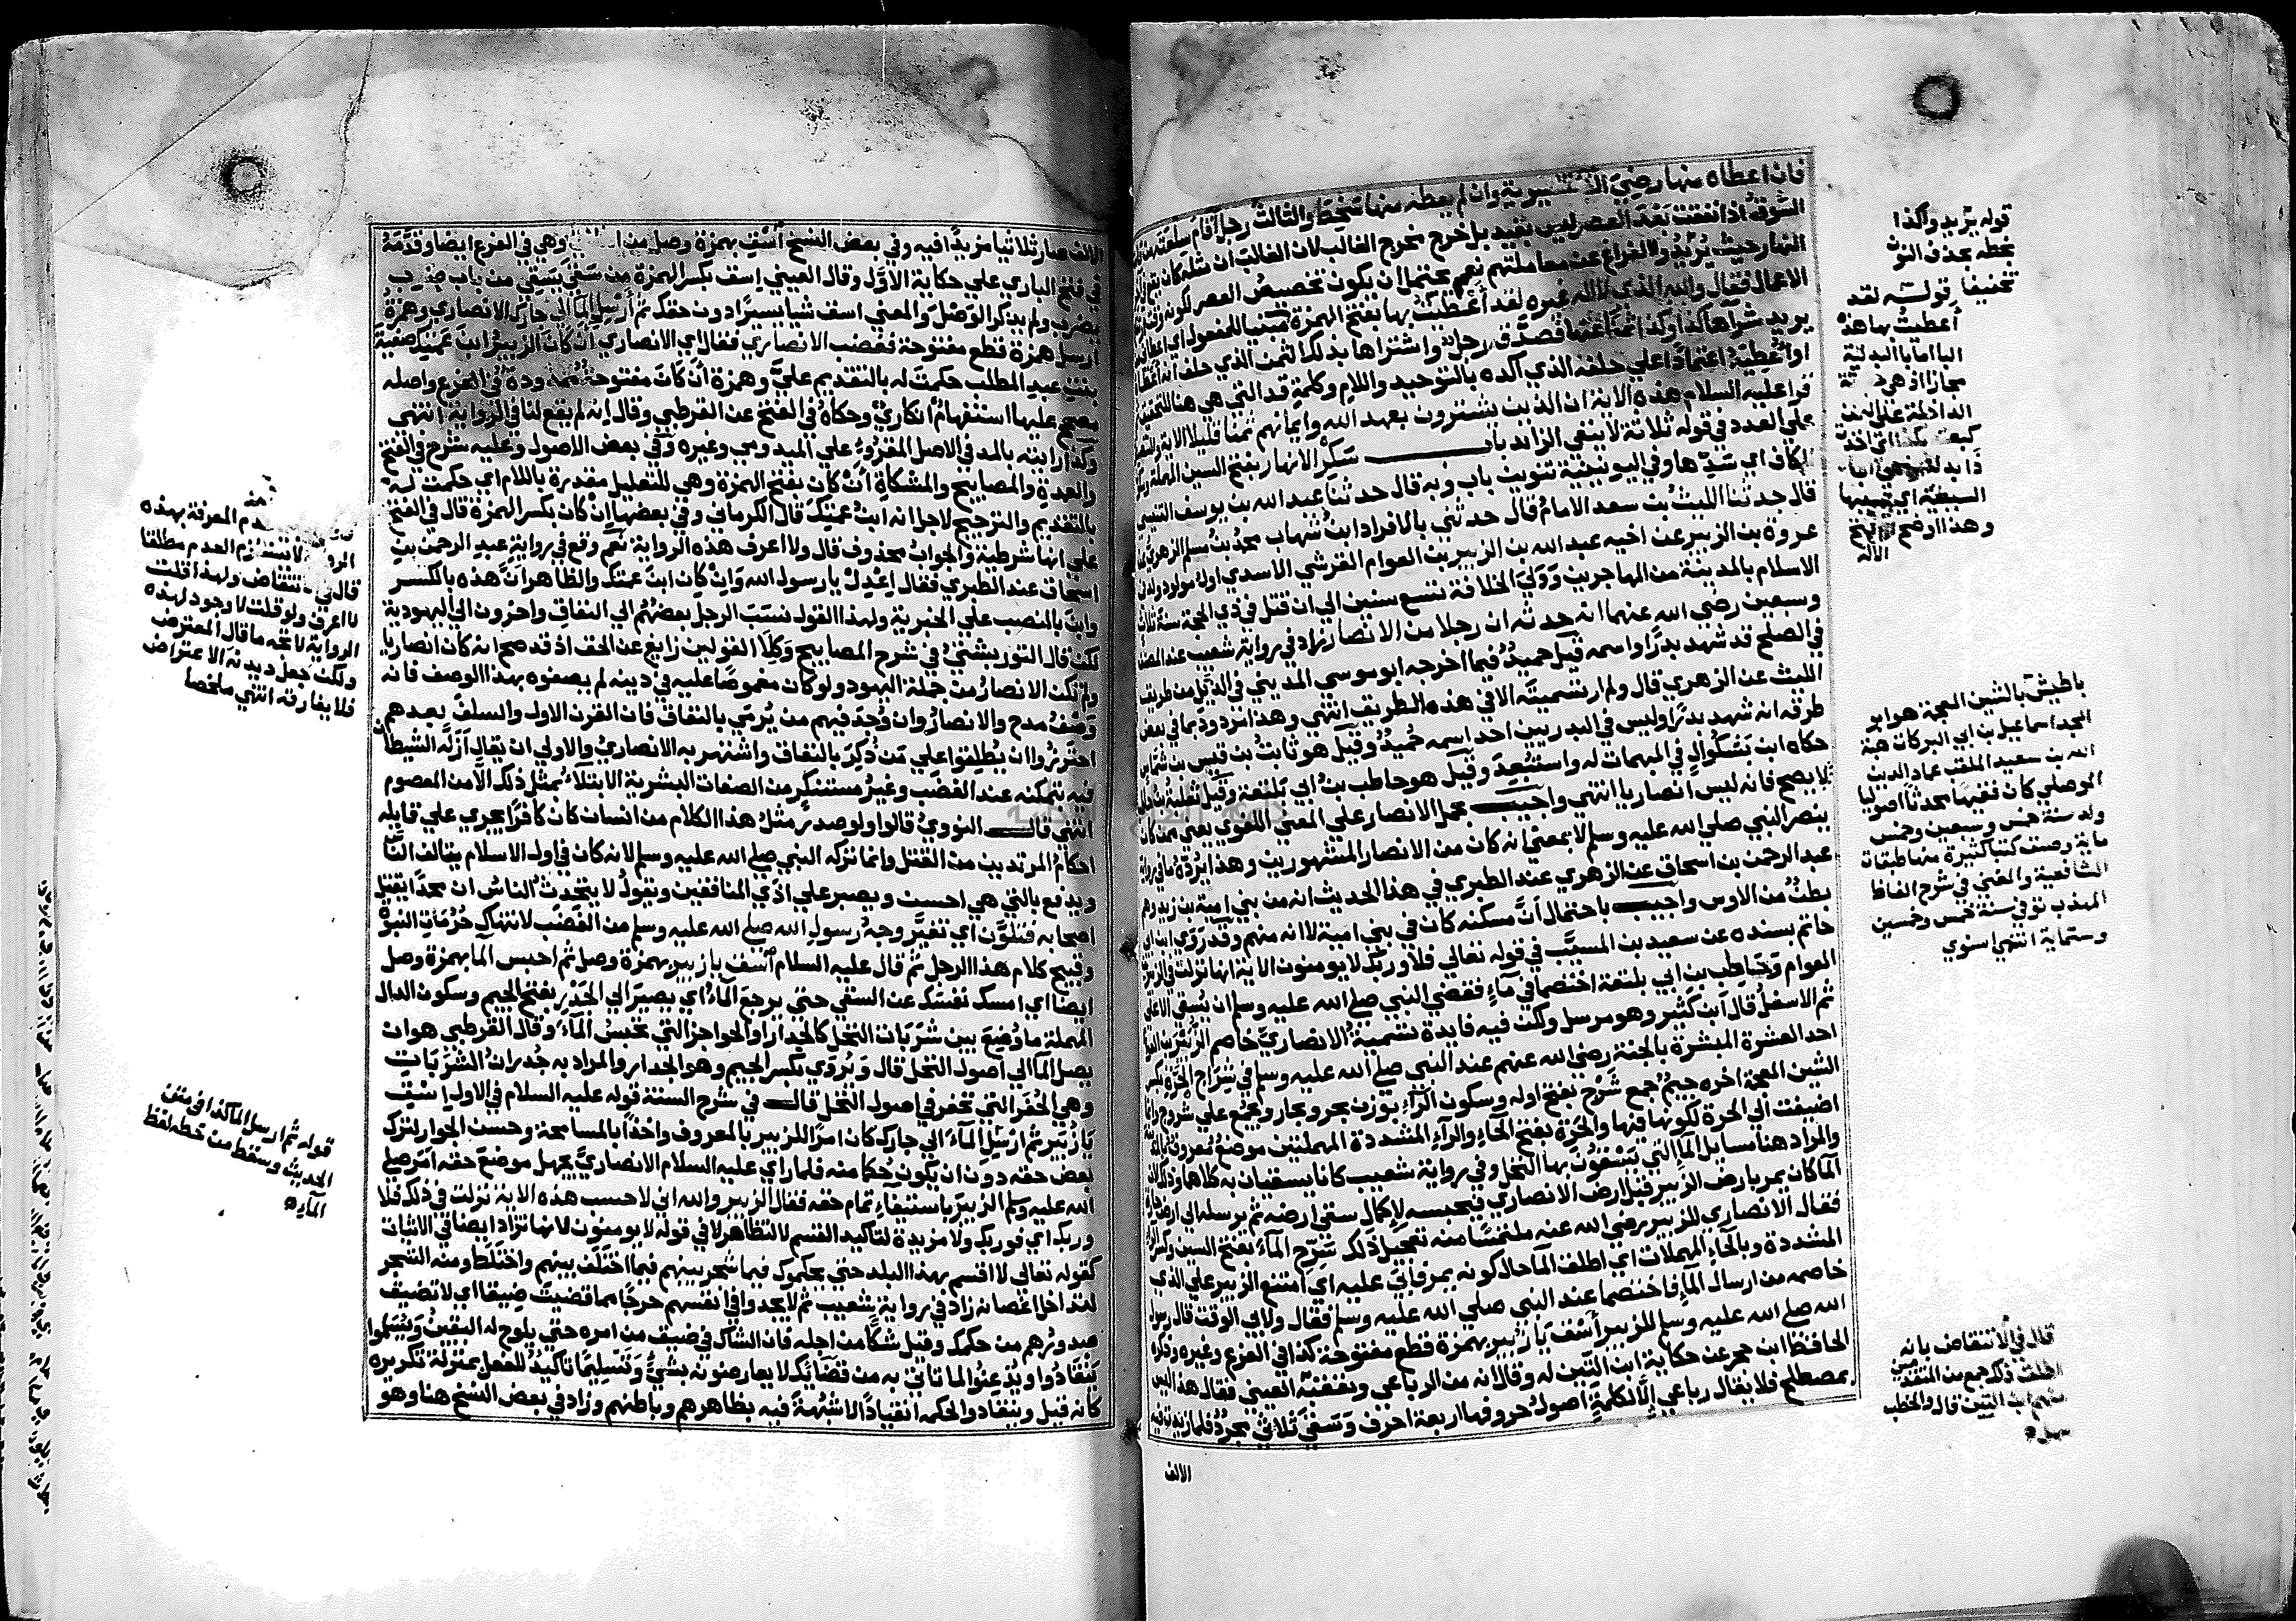 فان اعطاه منها رضي وان لم يعطه منها سخط والثالث رجل اقام سلعته من
السوق اذا نفقت بعد العصر ليس بقيد بل خرج مخرج الغالب لان الغالب ان مثله كان يقع في
النهار حيث يريدوا الفراغ عن معاملتهم نعم يحتمل ان يكون تخصيص العصر لكونه
الاعمال فقال والله الذي لا اله غيره لقد أعطيت بها بفتح الهمزة مبنيا للمفعول اي
يريد شراها كذا وكذا فصدقه رجل واشتراها بذلك الثمن الذي حلف انه
او أعطيه اعتمادا علي حلفه الذي اكده بالتوحيد واللام وكلمة قد التي هي هنا للتحقيق
قرا عليه السلام هذه الاية ان الذين يشترون بعهد الله وايمانهم ثمنا قليلا الاية
علي العدد في قوله ثلاثة لا ينفي الزائد باب سكر الانهار بفتح السين المهملة
الكاف اي سدها وفي اليونينية تنوين باب وبه قال حدثنا عبد الله بن يوسف التنيسي
قال حدثنا الليث بن سعد الامام قال حدثني بالافراد ابن شهاب محمد بن مسلم الزهري
عروة بن الزبير عن اخيه عبد الله بن الزبير بن العوام القرشي الاسدي اول مولود ولد في
الاسلام بالمدينة من المهاجرين وولي الخلافة تسع سنين الي ان قتل في ذي الحجة سنة ثلاث
وسبعين رضي الله عنهما انه حدثه ان رجلا من الانصار زاد في رواية شعيب عند المصنف
في الصلح قد شهد بدرا واسمه قيل حميد فيما اخرجه ابو موسي المديني في الذيل من طريق
الليث عن الزهري قال ولم ار تسميته الا في هذه الطريق انتهي وهذا مردود بما في بعض
طرقه انه شهد بدرا وليس في البدريين احد اسمه حميد وقيل هو ثابت بن قيس بن شماس
حكاه ابن بشكوال في المبهمات له واستبعد وقيل هو حاطب بن أبي بلتعة وقيل ثعلبة بن
ولا يصح فانه ليس انصاريا انتهي واجيب بحمل الانصار علي المعني اللغوي يعني ممن كان
ينصر النبي صلي الله عليه وسلم لا بمعني انه كان من الانصار المشهورين وهذا يرده ما في رواية
عبد الرحمن بن اسحاق عن الزهري عند الطبري في هذا الحديث انه من بني امية بن زيد وهم
بطن من الاوس واجيب باحتمال ان مسكنه كان في بني امية لا انه منهم وقد روي ابن ابي
حاتم بسنده عن سعيد بن المسيب في قوله تعالي فلا وربك لا يومنون الاية انها نزلت في الزبير
العوام وحاطب بن ابي بلتعة اختصما في ماء فقضي النبي صلي الله عليه وسلم ان يسقي الاعلي
ثم الاسفل قال ابن كثير وهو مرسل ولكن فيه فايدة تسمية الانصاري خاصم الزبير بن العوام
احد العشرة المبشرة بالجنة رضي الله عنهم عند النبي صلي الله عليه وسلم في شراج الحرة بكسر
الشين المعجمة اخره جيم جمع شرج بفتح اوله وسكون الراء بوزن بحر وبحار ويجمع علي شروج
اضيفت الي الحرة لكونها فيها والحرة بفتح الحاء والراء المشددة المهملتين موضع معروف بالمدينة
والمراد هنا مسايل الماء التي يسقون بها النخل وفي رواية شعيب كانا يسقيان به كلاهما
الما كان يمر بارض الزبير قبل ارض الانصاري فيحبسه لاكمال سقي ارضه ثم يرسله الي ارض
فقال الانصاري للزبير رضي الله عنه ملتمسا منه تعجيل ذلك سرح الماء بفتح السين وكسر
المشددة وبالحاء المهملات اي اطلق الما حال كونه يمر فابي عليه اي امتنع الزبير علي الذي
خاصمه من ارسال الما فاختصما عند النبي صلي الله عليه وسلم فقال ولابي الوقت قال رسول
الله صلي الله عليه وسلم للزبير أسق يا زبير بهمزة قطع مفتوحة كذا في الفرع وغيره وذكره
الحافظ ابن حجر عن حكاية ابن التين له وقال انه من الرباعي وتعقبه العيني فقال هذا ليس
بمصطلح فلا يقال رباعي إلا لكلمة أصول حروفها اربعة احرف وسقي ثلاثي مجرد فلما زيدت فيه
الالف
قوله يريدوا كذا
بخطه بحذف النون
تخفيفا قوله لقد
أعطيت بها هذه
الباء اما البدلية
مجازا اذ هي
الداخلة علي الثمن
السببية اي بسببها
وهذا اوضح
باطيش بالشين المعجمة هو ابو
المجد اسماعيل بن ابي البركات هبة
الله بن سعيد الملقب عماد الدين
الموصلي كان فقيها محدثا اصوليا
ولد سنة خمس وسبعين وخمس
ماية وصنف كتبا كثيرة منها طبقات
الشافعية والمغني في شرح الفاظ
المهذب توفي سنة خمس وخمسين
وستماية انتهي اسنوي
قال في الانتقاض بانه
ذكر جمع من المتقدمين
منهم ابن التين قال والخطب
سهل
الالف صار ثلاثيا مزيدا فيه وفي بعض النسخ أسق بهمزة وصل من وهي في الفرع ايضا وقدمه
في فتح الباري علي حكاية الاول وقال العيني إسق بكسر الهمزة من سقي يسقي من باب ضرب
يضرب ولم يذكر الوصل والمعني اسق شيا يسيرا دون حقك ثم أرسل الما الي جارك الانصاري وهمزة
ارسل همزة قطع مفتوحة فغضب الانصاري فقال اي الانصاري ان كان الزبير ابن عمتك صفية
بنت عبد المطلب حكمت له بالتقديم علي وهمزة أن كان مفتوحة ممدودة في الفرع واصله
مصحح عليها استفهام انكاري وحكاه في الفتح عن القرطبي وقال انه لم يقع لنا في الرواية انتهي
وكذا رايته بالمد في الاصل المقروء علي الميدومي وغيره وفي بعض الاصول وعليه شرح في الفتح
والعمدة والمصابيح والمشكاة أن كان بفتح الهمزة وهي للتعليل مقدرة باللام اي حكمت له
بالتقديم والترجيح لاجل انه ابن عمتك قال الكرماني وفي بعضها إن كان بكسر الهمزة قال في الفتح
علي انها شرطية والجواب محذوف قال ولا اعرف هذه الرواية نعم وقع في رواية عبد الرحمن بن
اسحاق عند الطبري فقال اعدل يا رسول الله وان كان ابن عمتك والظاهر ان هذه بالكسر
وابن بالنصب علي الخبرية ولهذا القول نسب الرجل بعضهم الي النفاق واخرون الي اليهودية
لكن قال التوربشتي في شرح المصابيح وكلا القولين زايغ عن الحق اذ قد صح انه كان انصاريا
ولم تكن الانصار من جملة اليهود ولو كان مغموصا عليه في دينه لم يصفوه بهذا الوصف فانه
وصف مدح والانصار وان وجد فيهم من يرمي بالنفاق فان القرن الاول والسلف بعدهم
احترزوا ان يطلقوا علي من ذكر بالنفاق واشتهر به الانصاري والاولي ان يقال أزله الشيطان
فيه بتمكنه عند الغضب وغير مستنكر من الصفات البشرية الابتلاء بمثل ذلك الا من المعصوم
انتهي قال النووي قالوا ولو صدر مثل هذا الكلام من انسان كان كافرا يجري علي قايله
احكام المرتدين من القتل وانما تركه النبي صلي الله عليه وسلم لانه كان في اول الاسلام يتالف الناس
ويدفع بالتي هي احسن ويصبر علي اذي المنافقين ويقول لا يتحدث الناس ان محمدا يقتل
اصحابه فتلون اي تغير وجه رسول الله صلي الله عليه وسلم من الغضب لانتهاك حرمات النبوة
وقبيح كلام هذا الرجل ثم قال عليه السلام أسق يا زبير بهمزة وصل ثم احبس الما بهمزة وصل
ايضا اي امسك نفسك عن السقي حتي يرجع الماء اي يصير الي الجدر بفتح الجيم وسكون الدال
المهملة ما وضع بين شربات النخل كالجدار او الحواجز التي تحبس الماء وقال القرطبي هو ان
يصل الما الي اصول النخل قال ويروي بكسر الجيم وهو الجدار والمراد به جدران الشربات
وهي الحفر التي تحفر في اصول النخل قال في شرح السنة قوله عليه السلام في الاول إسق
يا زبير ثم ارسل الماء الي جارك كان امرا للزبير بالمعروف واخذا بالمسامحة وحسن الجوار لترك
بعض حقه دون ان يكون حكما منه فلما راي عليه السلام الانصاري يجهل موضع حقه امر صلي
الله عليه وسلم الزبير باستيفاء تمام حقه فقال الزبير والله اني لاحسب هذه الاية نزلت في ذلك فلا
وربك اي فوربك ولا مزيدة لتاكيد القسم لا لتظاهر لا في قوله لا يومنون لانها تزاد ايضا في الاثبات
كقوله تعالي لا اقسم بهذا البلد حتي يحكموك فيما شجر بينهم فيما اختلف بينهم واختلط ومنه الشجر
لتداخل اغصانه زاد في رواية شعيب ثم لا يجدوا في انفسهم حرجا مما قضيت ضيقا اي لا تضيق
صدورهم من حكمك وقيل شكا من اجله فان الشاك في ضيق من امره حتي يلوح له اليقين ويسلموا
ينقادوا ويذعنوا لما تاتي به من قضائك لا يعارضونه بشيء وتسليما تاكيد للفعل بمنزلة تكريره
كانه قيل وينقادوا لحكمه انقيادا لا شبهة فيه بظاهرهم وباطنهم وزاد في بعض النسخ هنا وهو
عدم المعرفة بهذه
لا يستلزم العدم مطلقا
قال في انتقاض ولهذا قلت
لا اعرف ولو قلت لا وجود لهذه
الرواية لاتجه ما قال المعترض
ولكن جعل ديدنه الاعتراض
فلا يفارقه انتهي ملخصا
قوله ثم ارسل الما كذا في متن
الحديث وسقط من خطه لفظ
الماء